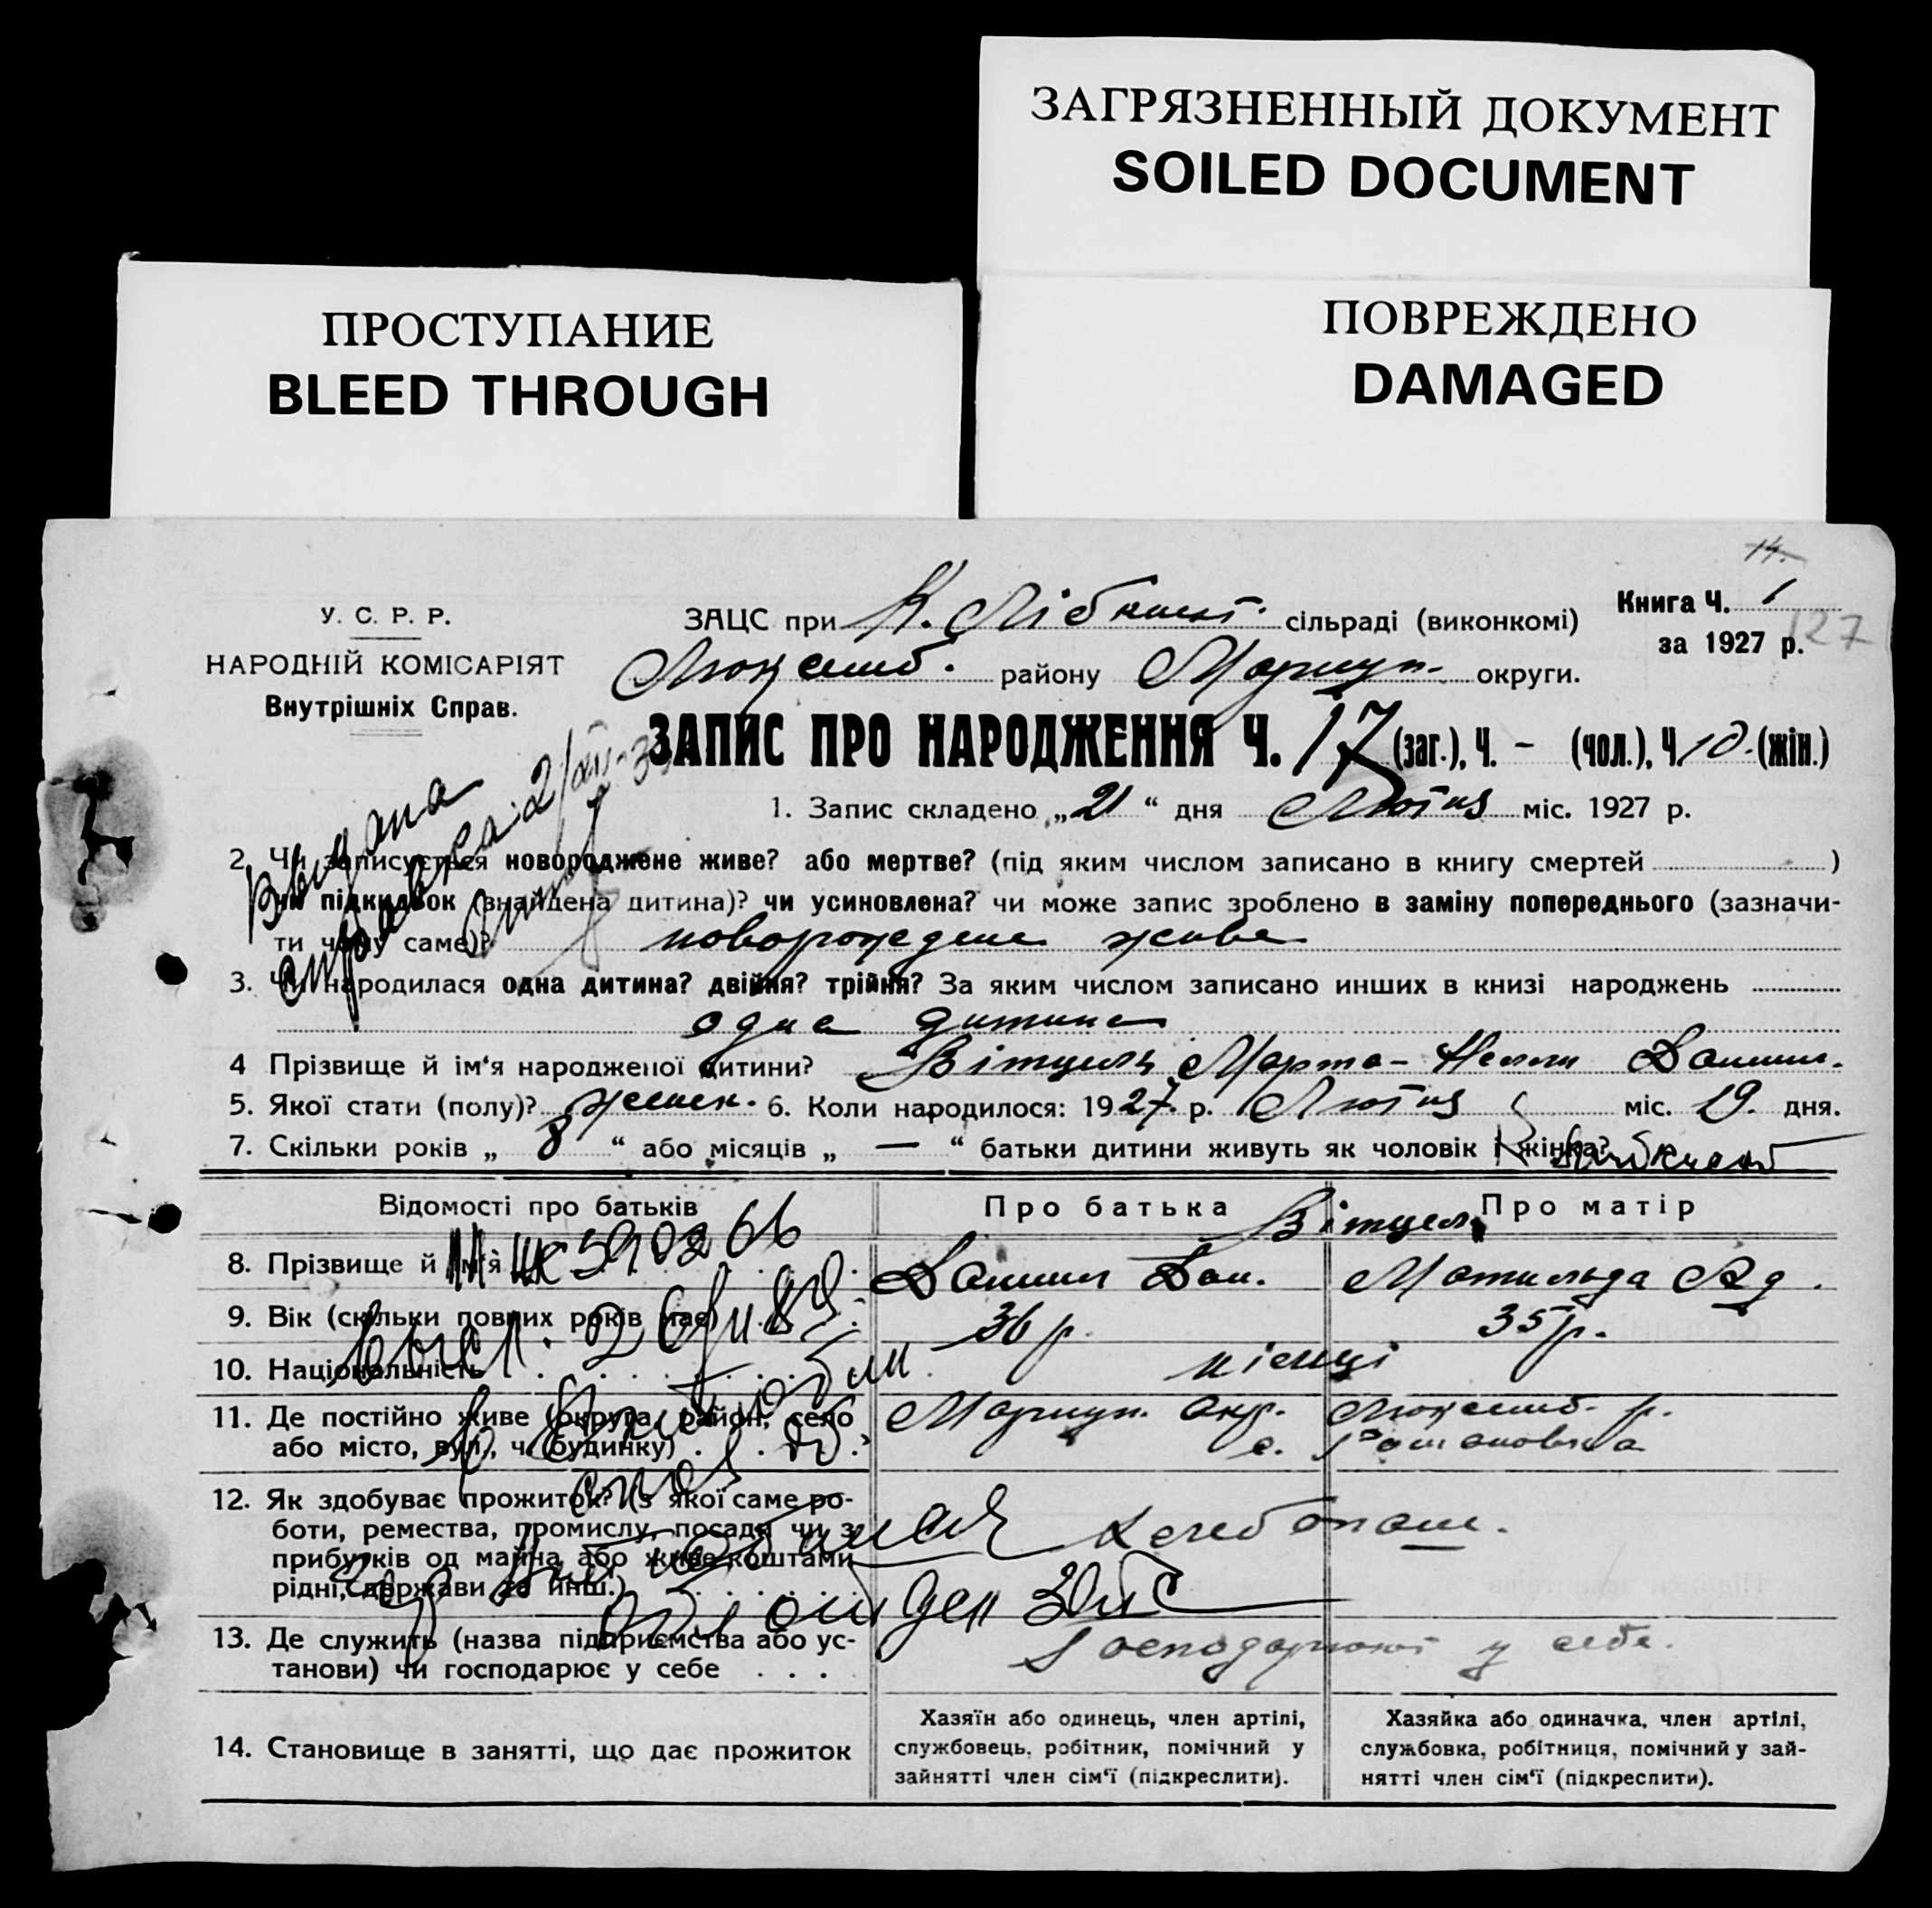 ЗАГРЯЗНЕННЫЙ ДОКУМЕНТ
SOILED DOCUMENT
ПРОСТУПАНИЕ
BLEED THROUGH
ПОВРЕЖДЕНО
DAMAGED
14.
У. С. Р. Р.
НАРОДНІЙ КОМІСАРІЯТ
Внутрішніх Справ.
ЗАЦС при К. Лібкнехт. сільраді (виконкомі)
Люксемб. району Маріуп. округи.
Книга Ч. 1
за 1927 р.
127
ЗАПИС ПРО НАРОДЖЕННЯ Ч. 17 (заг.), Ч. – (чол.), Ч. 10. (жін.)
1. Запис складено „21“ дня Лютня міс. 1927 р.
2. Чи записується новороджене живе? або мертве? (під яким числом записано в книгу смертей )
чи підкидьок (знайдена дитина)? чи усиновлена? чи може запис зроблено в заміну попереднього (зазначи-
ти чому саме)? новорожедене живе
3. Чи народилася одна дитина? двійня? трійня? За яким числом записано инших в книзі народжень
одна дитина
4 Прізвище й ім‘я народженої дитини? Вітцель Марта-Нелли Даниил.
5. Якої стати (полу)? женск. 6. Коли народилося: 1927. р. Лютня міс. 19. дня.
7. Скільки років „ 8 “ або місяців „ — “ батьки дитини живуть як чоловік і жінка?
Видана
справка
Відомості про батьків
Про батька
Про матір
Вітцель
8. Прізвище й ім‘я
Даниил Дан.
Матильда Ад.
9. Вік (скільки повних років має)
36 р.
35 р.
10. Національність
німці
11. Де постійно живе (округа, район, село
або місто, вул., ч. будинку)
Маріуп. окр. Люксемб. р.
с.
12. Як здобуває прожиток? (з якої саме ро-
боти, ремества, промислу, посади чи з
прибутків од майна або живе коштами
рідні, держави та инш.)
хлебопаш.
13. Де служить (назва підприємства або ус-
танови) чи господарює у себе
Господарюют у себе.
14. Становище в занятті, що дає прожиток
Хазяїн або одинець, член артілі,
службовець, робітник, помічний у
зайнятті член сім‘ї (підкреслити).
Хазяйка або одиначка, член артілі,
службовка, робітниця, помічний у зай-
нятті член сім‘ї (підкреслити).